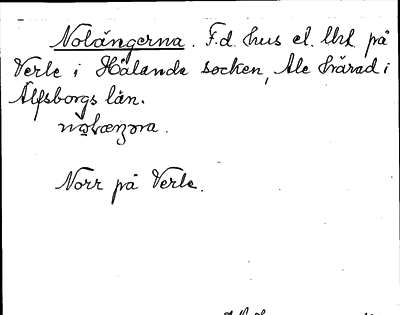 Nolängerna. F.d. hus el. lht på
Verle i Hålanda socken, Ale härad i
Älfsborgs län.
Norr på Verle.